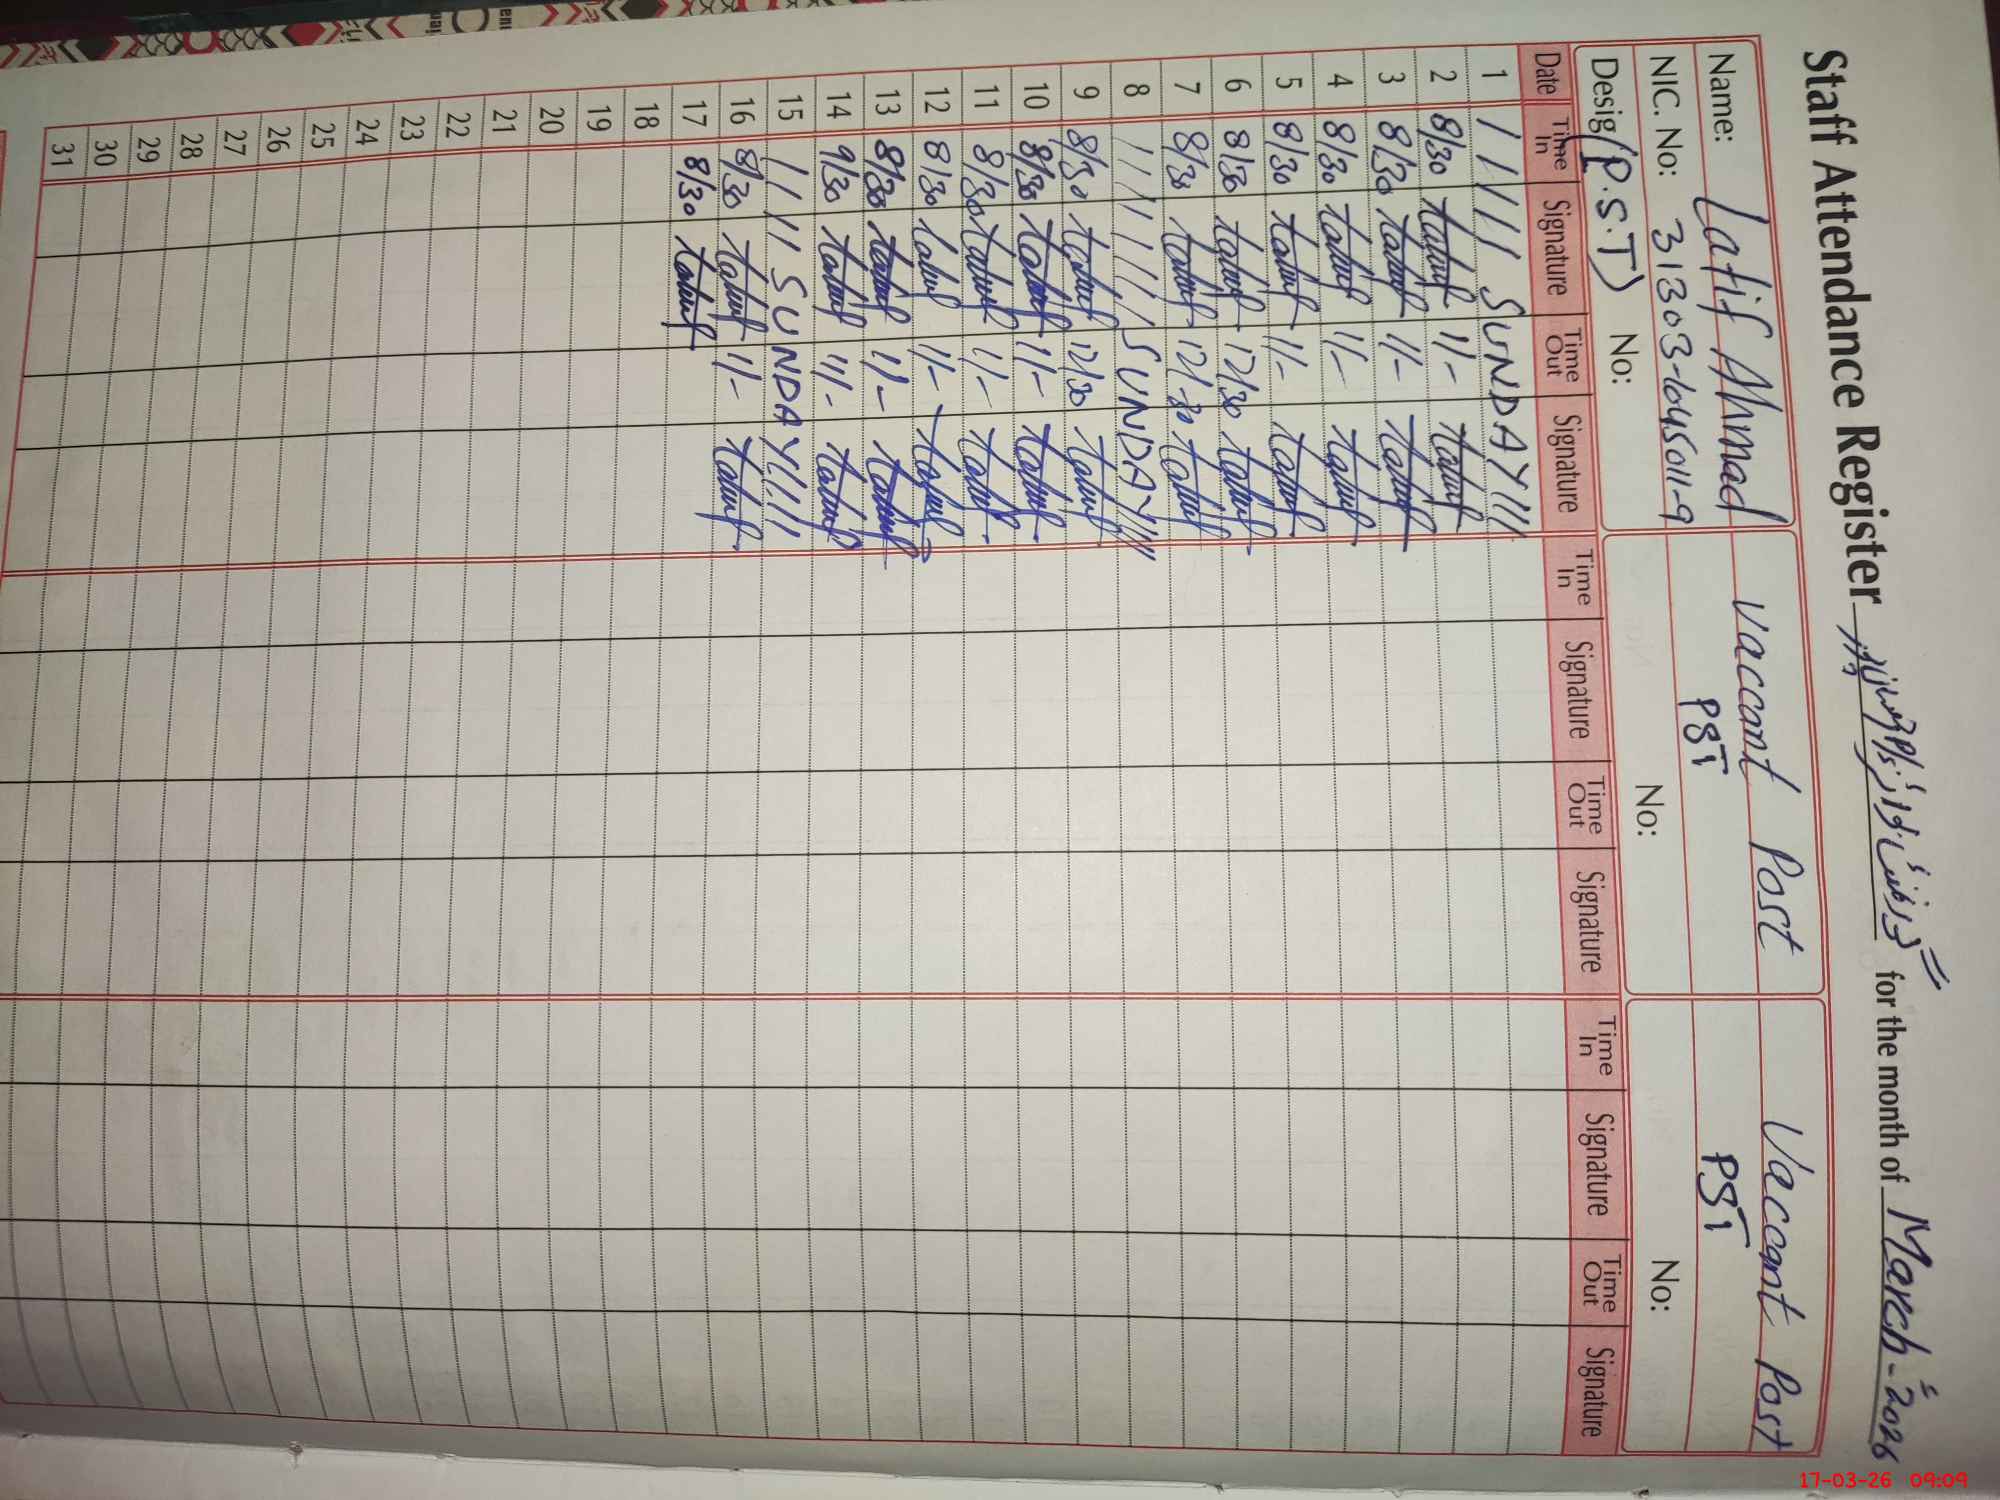 Staff Attendance Register for the month of March-2026
Name: Latif Ahmad
NIC. No: 31303-1045011-9
Desig (P.S.T) No:
Vaccant Post
PST
No:
Vaccant Post
PST
No:
Date Time In Signature Time Out Signature Time In Signature Time Out Signature Time In Signature Time Out Signature
1 SUNDAY
2 8/30 11/-
3 8/30 11/-
4 8/30 11/-
5 8/30 11/-
6 8/30 12/30
7 8/30 12/-30
8 SUNDAY
9 8/30 12/30
10 8/30 11/-
11 8/30 11/-
12 8/30 11/-
13 8/30 11/-
14 9/30 11/-
15 SUNDAY
16 8/30 11/-
17 8/30
18
19
20
21
22
23
24
25
26
27
28
29
30
31
17-03-26 09:09